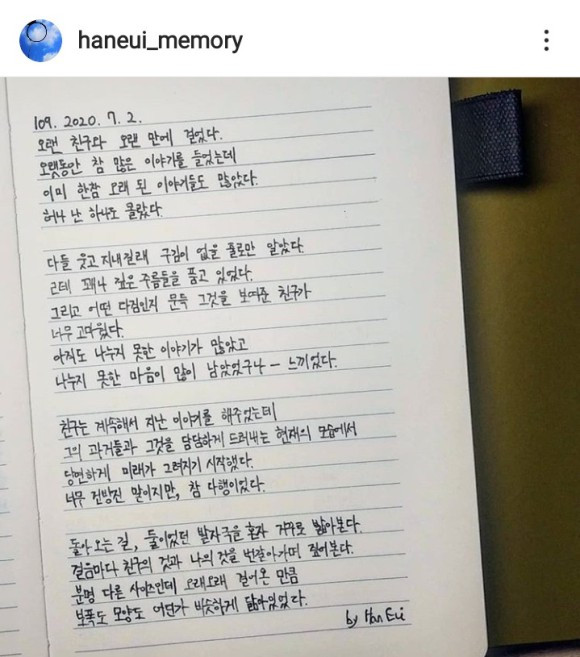 haneui_memory
109. 2020. 7. 2.
오랜 친구와 오랜 만에 걸었다.
오랫동안 참 많은 이야기를 들었는데
이미 한참 오래 된 이야기들도 많았다.
허나 난 하나도 몰랐다.
다들 웃고 지내길래 구김이 없을 줄로만 알았다.
근데 꽤나 깊은 주름들을 품고 있었다.
그리고 어떤 다짐인지 문득 그것을 보여준 친구가
너무 고마웠다.
아직도 나누지 못한 이야기가 많았고
나누지 못한 마음이 많이 남았었구나 - 느끼었다.
친구는 계속해서 지난 이야기를 해주었는데
그의 과거들과 그것을 담담하게 드러내는 현재의 모습에서
당연하게 미래가 그려지기 시작했다.
너무 건방진 말이지만, 참 다행이었다.
돌아 오는 길, 둘이었던 발자국을 혼자 거꾸로 밟아본다.
걸음마다 친구의 것과 나의 것을 번갈아가며 짚어본다.
분명 다른 사이즈인데 오래오래 걸어온 만큼
보폭도 모양도 어딘가 비슷하게 닮아있었다.
by Han Eui